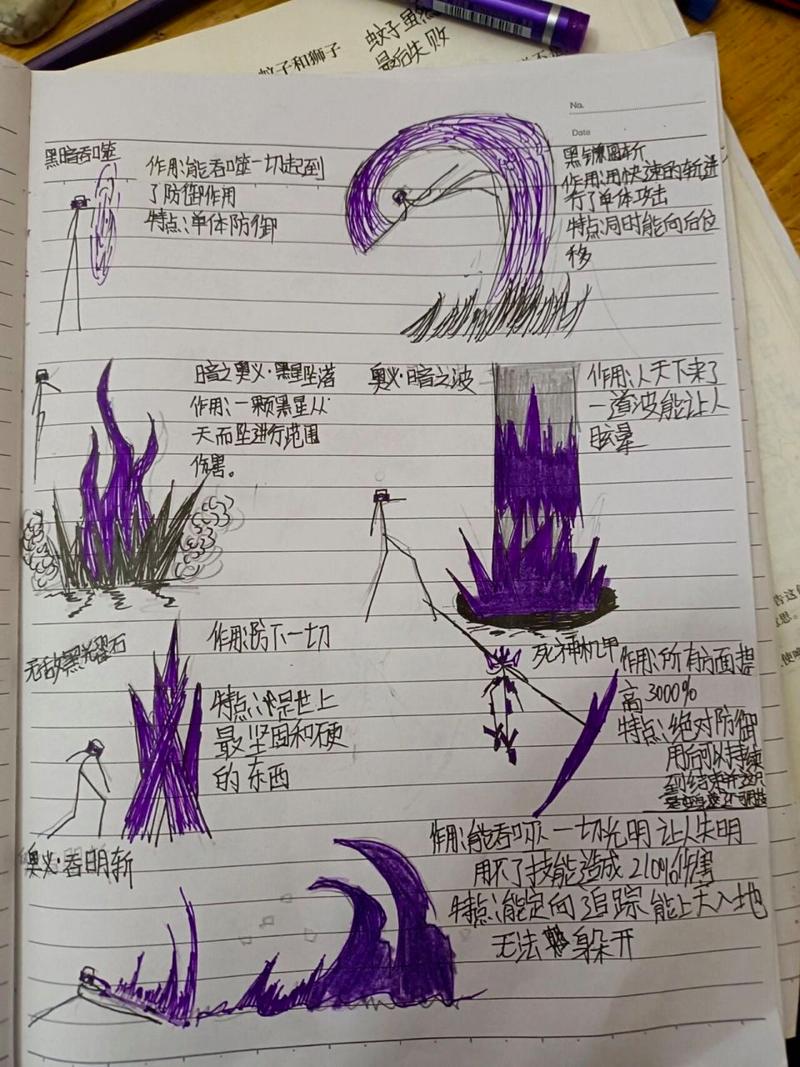 蚊子和狮子
蚊子虽然
最后失败
No.
Date
黑暗吞噬
作用:能吞噬一切起到
了防御作用
特点:单体防御
黑镰圆斩
作用:用快速的斩进
行了单体攻击
特点:同时能向后位
移
暗之奥义·黑星坠落
作用:一颗黑星从
天而坠进行范围
伤害。
奥义·暗之波
作用:从天下来了
一道波能让人
眩晕
无敌黑光曜石
作用:防下一切
特点:是世上
最坚固和硬
的东西
死神机甲
作用:所有方面提
高3000%
特点:绝对防御
用后可以持续
到结束并
奥义·吞明斩
作用:能吞噬一切光明让人失明
用不了技能造成210%伤害
特点:能定向追踪能上天入地
无法躲开